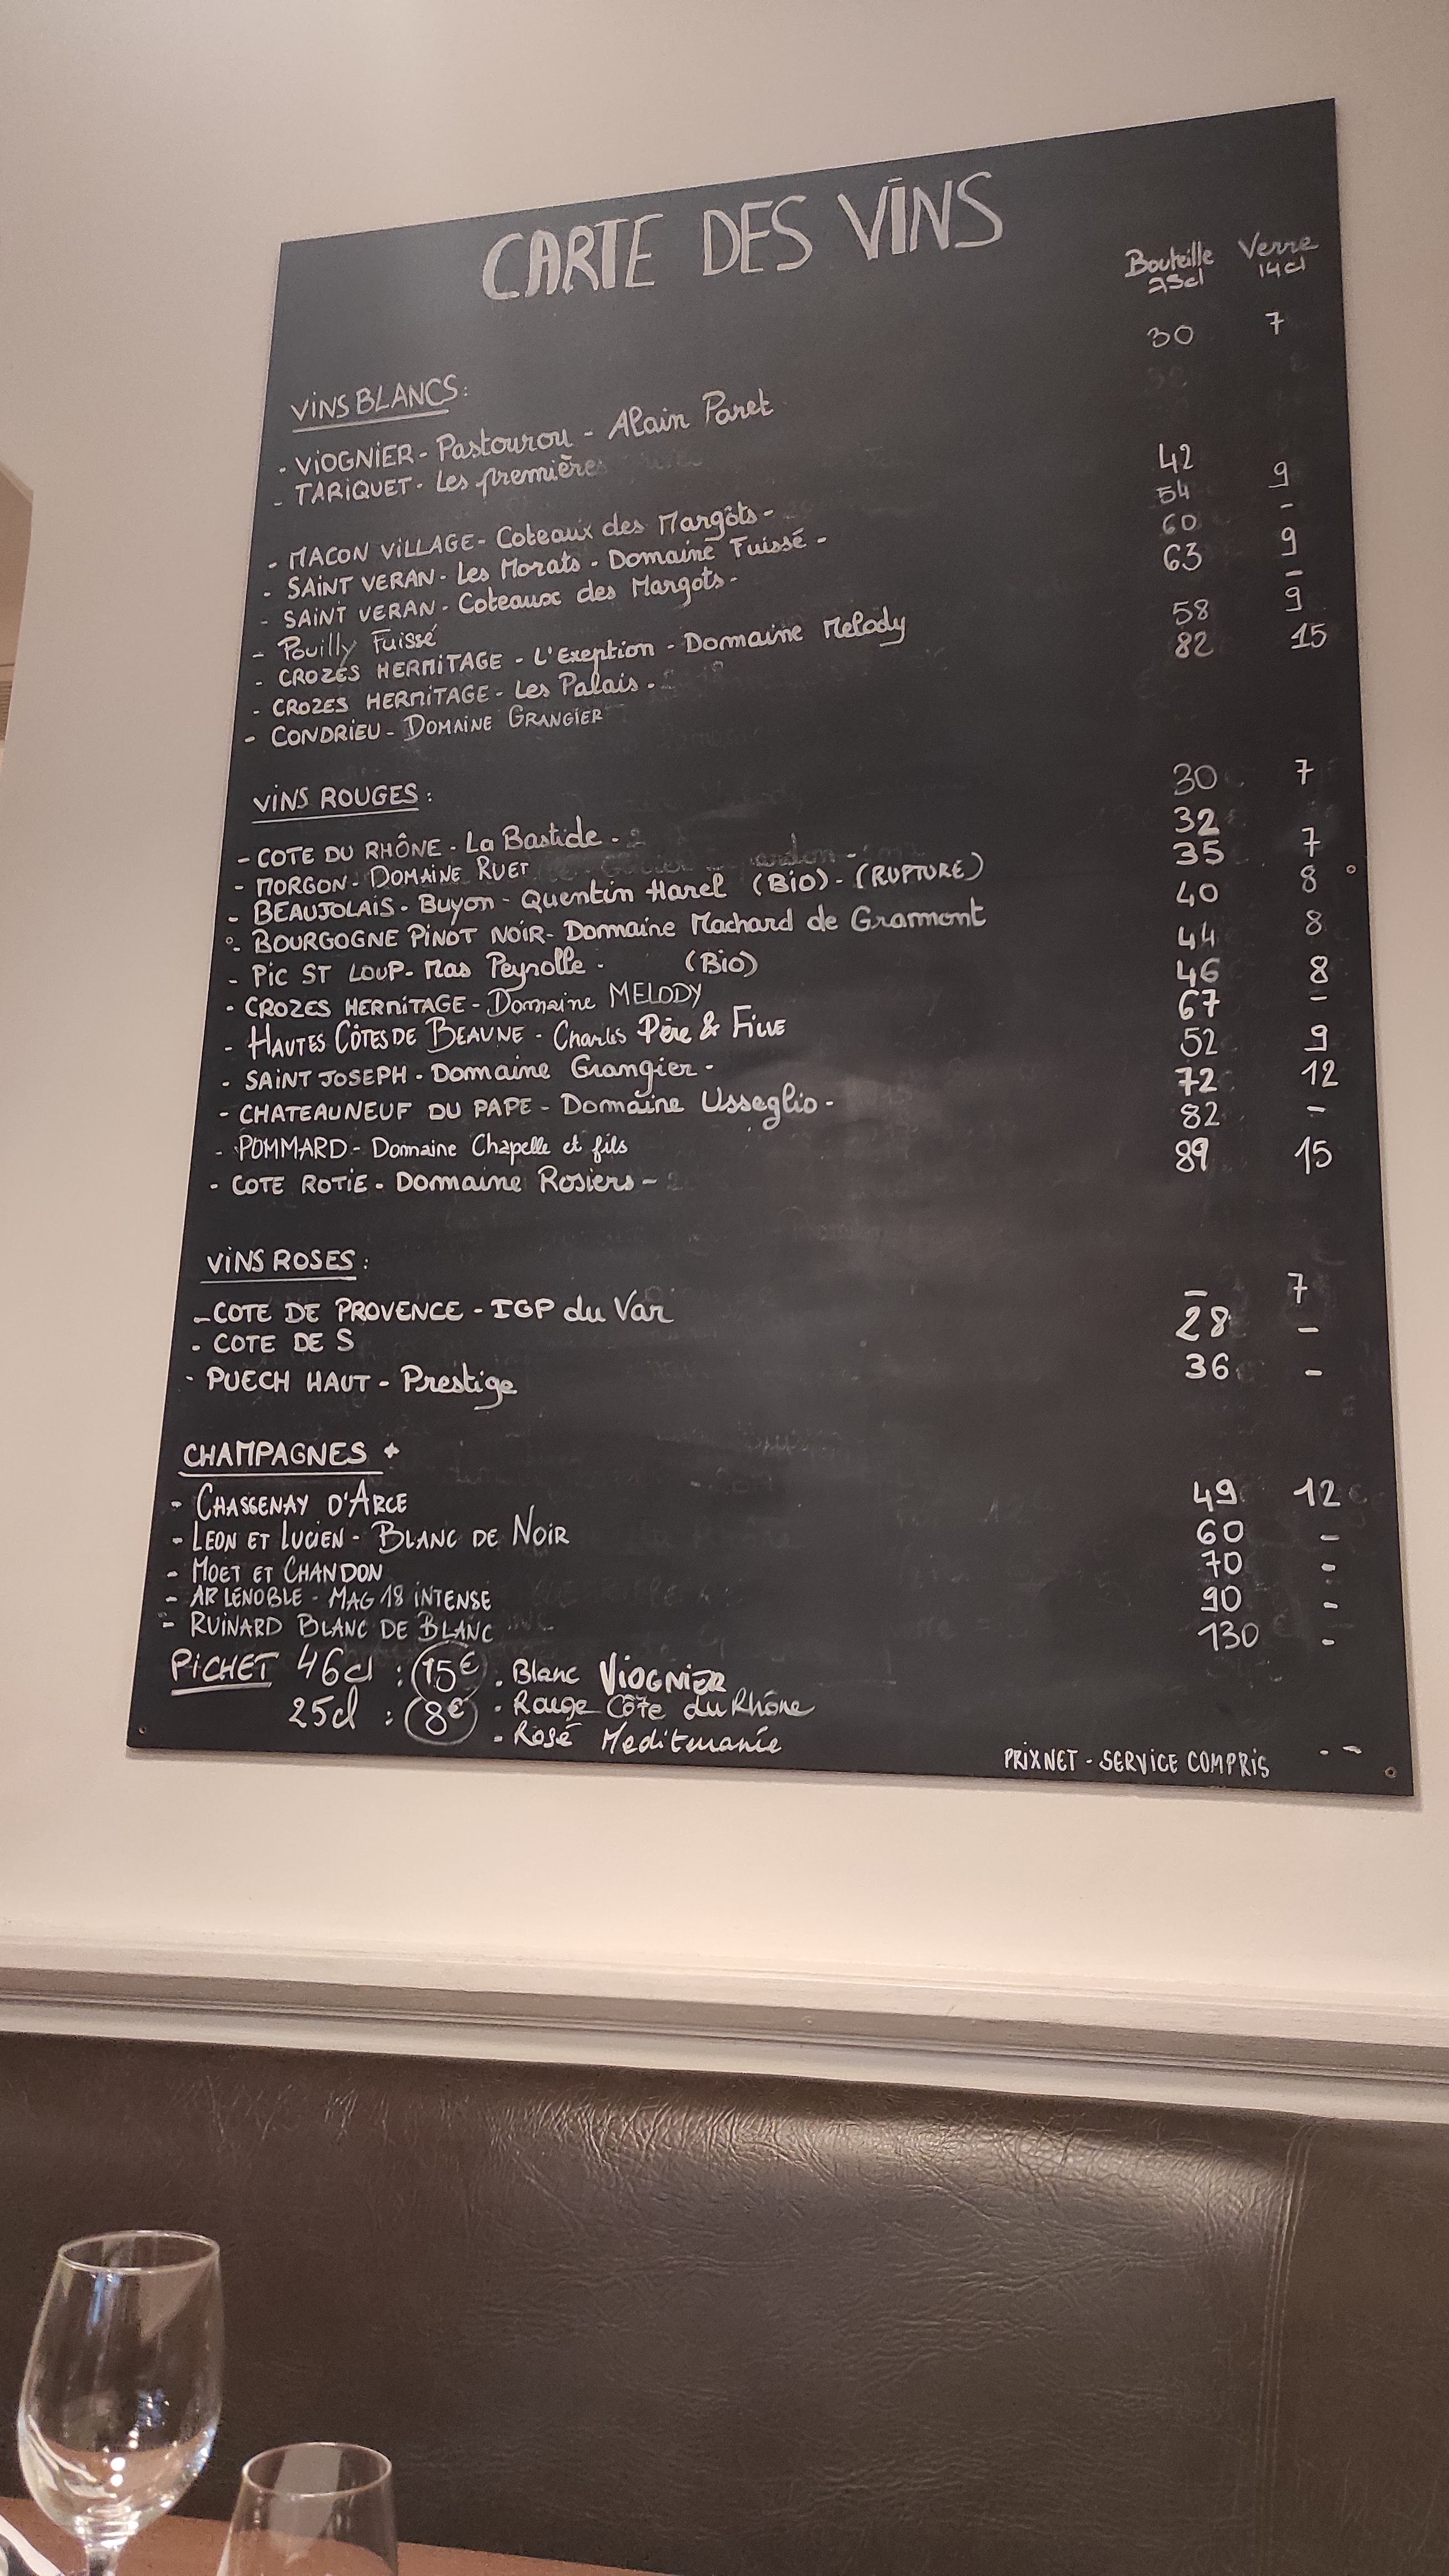 CARTE DES VINS
Bouteille Verre
75cl 14cl
VINS BLANCS:
- VIOGNIER - Pastourou - Alain Paret 30 7
- TARIQUET - Les première
- MACON VILLAGE - Coteaux des Margôts - 42
- SAINT VERAN - Les Morats - Domaine Fuissé - 54 9
- SAINT VERAN - Coteaux des Margots - 60 -
- Pouilly Fuissé 63 9
- CROZES HERMITAGE - L'Exeption - Domaine Melody -
- CROZES HERMITAGE - Les Palais - 58 9
- CONDRIEU - DOMAINE GRANGIER 82 15
VINS ROUGES :
- COTE DU RHÔNE - La Bastide - 30 7
- MORGON - DOMAINE RUET 32
- BEAUJOLAIS - Buyon - Quentin Harel (Bio) - (RUPTURE) 35 7
- BOURGOGNE PINOT NOIR - Domaine Machard de Gramont 40 8
- PIC ST LOUP - Mas Peyrolle - (Bio) 44 8
- CROZES HERMITAGE - Domaine MELODY 46 8
- HAUTES CÔTES DE BEAUNE - Charles Père & FILLE 67 -
- SAINT JOSEPH - Domaine Grangier - 52 9
- CHATEAUNEUF DU PAPE - Domaine Usseglio - 72 12
- POMMARD - Domaine Chapelle et fils 82 -
- COTE ROTIE - Domaine Rosiers - 89 15
VINS ROSES :
- COTE DE PROVENCE - IGP du Var - 7
- COTE DE S 28 -
- PUECH HAUT - Prestige 36 -
CHAMPAGNES
- CHASSENAY D'ARCE 49 12
- LEON ET LUCIEN - BLANC DE NOIR 60 -
- MOET ET CHANDON 70 -
- AR LENOBLE - MAG 18 INTENSE 90 -
- RUINARD BLANC DE BLANC 130 -
PICHET 46cl : 15€ - Blanc VIOGNIER
25cl : 8€ - Rouge Côte du Rhône
- Rosé Mediterranée
PRIX NET - SERVICE COMPRIS